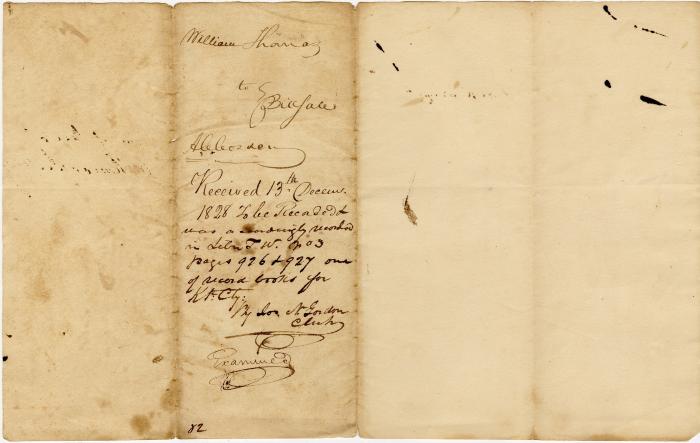 William Thomas
to
Bill Sale
A C Cordon
Received 13th Decem.
1828 To be Recorded &
was accordingly recorded
in Liber T W. no 3
pages 926 & 927 one
of record books for
Kt. Cty:
By Jos N Gordon
Clerk
Examined
82